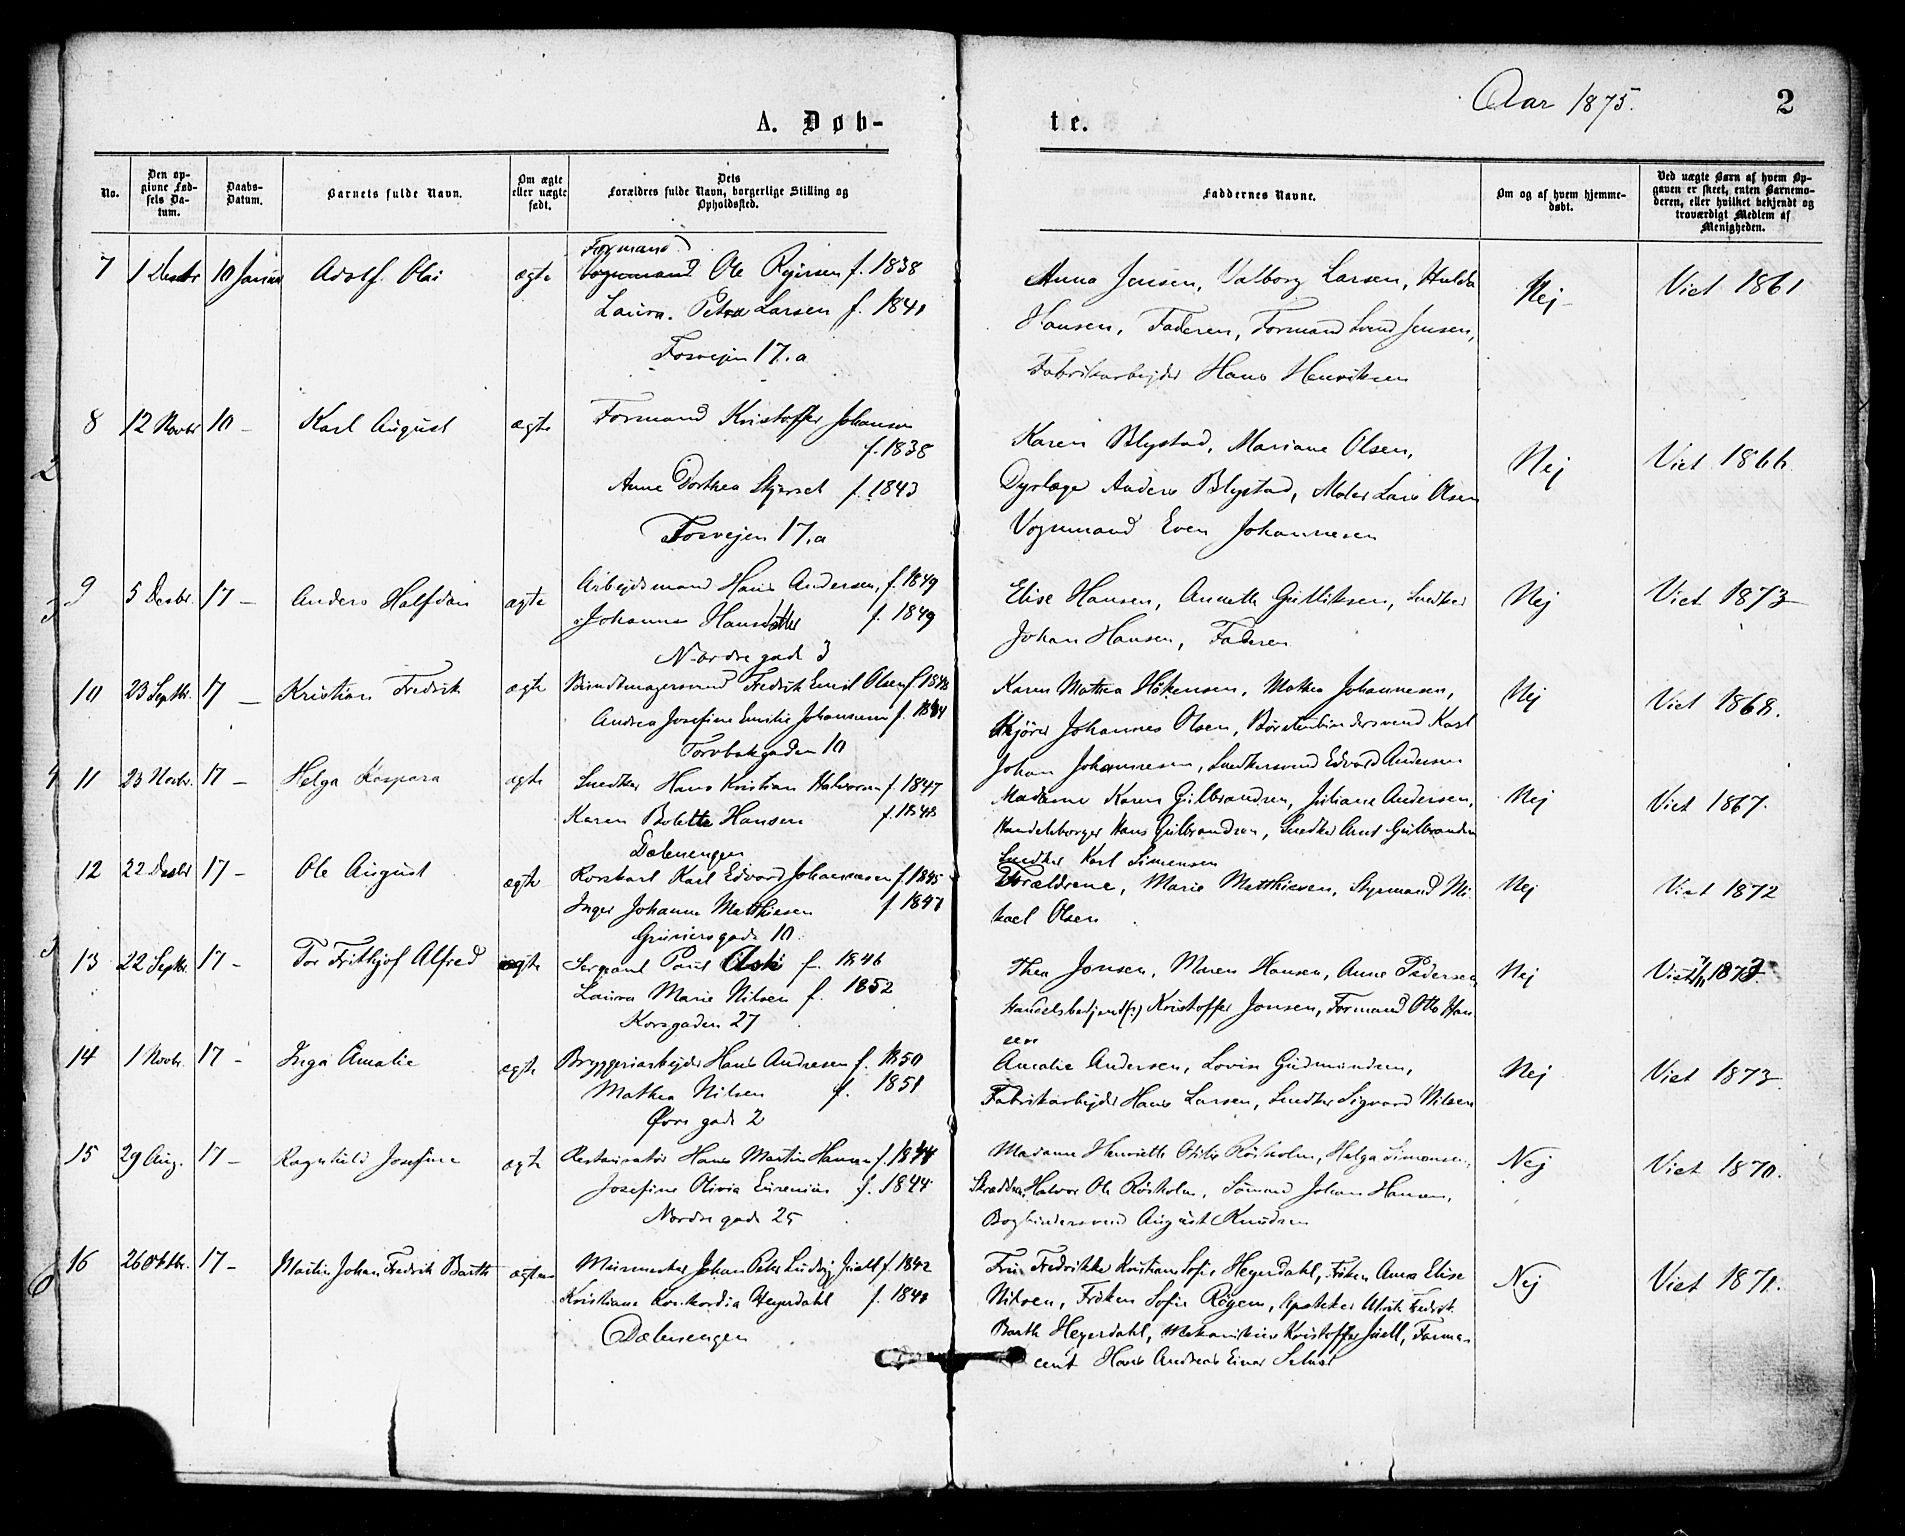 Aar 1875.
2
A. Døb-
te.
No.
Den op-
givne Fød-
sels Da-
tum.
Daabs-
Datum.
Barnets fulde Navn.
Om ægte
eller uægte
født.
Dets
Forældres fulde Navn, borgerlige Stilling og
Opholdssted.
Faddernes Navne.
Om og af hvem hjemme-
døbt.
Ved uægte Børn af hvem Op-
gaven er skeet, enten Barnemo-
deren, eller hvilket bekjendt og
troværdigt Medlem af
Menigheden.
7 1 Desbr 10 Januar Adolf Olai ægte
Formand
Vognmand Ole f. 1838
Laura Petra Larsen f. 1841
Fosvejen 17.a
Anna Jensen, Valborg Larsen, Hulda
Hansen, Faderen, Formand Svend Jensen,
Fabrikarbejder Hans Henriksen
Nej
Viet 1861
8 12 Novbr 10 – Karl August ægte
Formand Kristoffer Johansen
f. 1838
Anne Dorthea f. 1843
Fosvejen 17.a
Karen Blystad, Mariane Olsen,
Dyrlæge Anders Blystad, Maler Lars Olsen
Vognmand Even Johannesen
Nej
Viet 1866
9 5 Desbr. 17 – Anders Halfdan ægte
Arbejdsmand Hans Andersen, f. 1849
Johanne Hansdatter f. 1849
Nordregade 3
Elise Hansen, Annette Gulliksen, Snedker
Johan Hansen, Faderen
Nej
Viet 1873
10 23 Septbr. 17 – Kristian Fredrik ægte
Bundtmagersvend Fredrik Emil Olsen f. 1848
Andrea Josefine Emilie Johansen f. 1844
Torvbakgaden 10
Karen Mathea Håkensen, Mathea Johannesen,
Kjører Johannes Olsen, Børstenbindersvend Karl
Johan Johannesen, Snedkersvend Edvard Andersen
Nej
Viet 1868.
11 23 Novbr. 17 – Helga Kaspara ægte
Snedker Hans Kristian Halvorsen f. 1847
Karen Bolette Hansen f. 1848
Dælenengen
Madame Karen Gulbrandsen, Juliane Andersen,
Handelsborger Hans Gulbrandsen, Snedker Gulbrandsen
Snedker Karl Simensen
Nej
Viet 1867.
12 22 Desbr 17 – Ole August ægte
Karl Edvard Johannesen f. 1845
Inger Johanne Matthiesen f. 1847
Grünersgade 10.
Forældrene, Marie Matthiesen, Styrmand Mi-
kael Olsen
Nej
Viet 1872
13 22 Septbr. 17 – Tor Frithjof Alfred ægte
Sergeant Paul Aski f. 1846
Laura Marie Nilsen f. 1852
Korsgaden 27
Thea Jonsen, Maren Hansen, Anne Pedersen
Handelsbetjent(?) Kristoffer Jonsen, Formand Otto Han-
sen
Nej
Viet 1873.
14 1 Novbr. 17 – Inga Amalie ægte
Bryggeriarbejder Hans Andresen f. 1850
Mathea Nilsen f. 1851
Øvregade 2
Amalie Andersen, Lovise Gudmundsen,
Fabrikarbejder Hans Larsen, Snedker Sigvard Nilsen
Nej
Viet 1873.
15 29 Aug. 17 – Ragnhild Josefine ægte
Restauratør Hans Martin Hansen f. 1844
Josefine Olivia Eurenius f. 1844
Nordregade 25
Madame Henriette Otilie Røsholm, Helga Simensen,
Skrædder Halvor Ole Røsholm, Sømand Johan Hansen,
Bogbindersvend August Knudsen
Nej
Viet 1870.
16 26 Oktbr. 17 – Martin Johan Fredrik Barth ægte
Murmester Johan Peter Ludvig Juell f. 1842
Kristiane Konkordia Heyerdahl f. 1841
Dælenengen
Fru Fredrikke Kristiane Sofie Heyerdahl, Frøken Anna Elise
Nilsen, Frøken Sofie Røgen, Apoteker Ulrik Fredrik
Barth Heyerdahl, Mekanikus Kristoffer Juell, Farma-
ceut Hans Andreas Einar
Nej
Viet 1871.